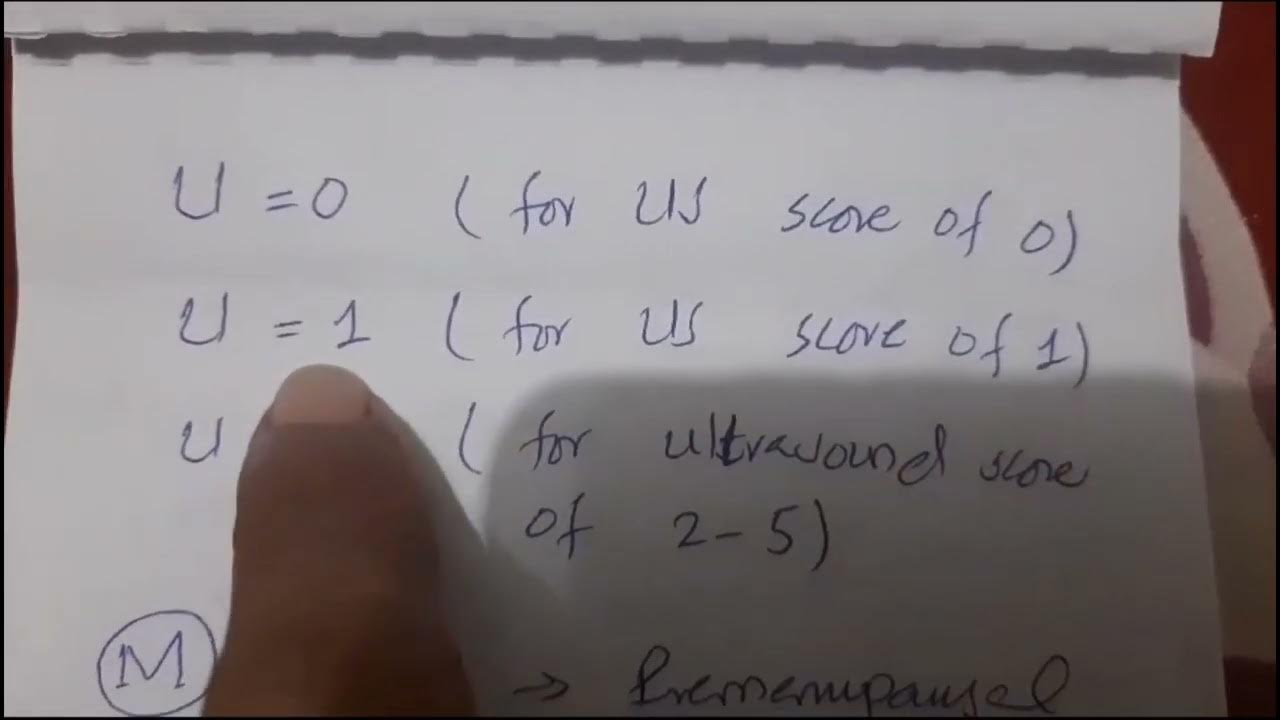 U = 0 ( for US score of 0)
U = 1 ( for US score of 1)
U ( for ultrasound score
of 2 - 5)
M → Premenupausel